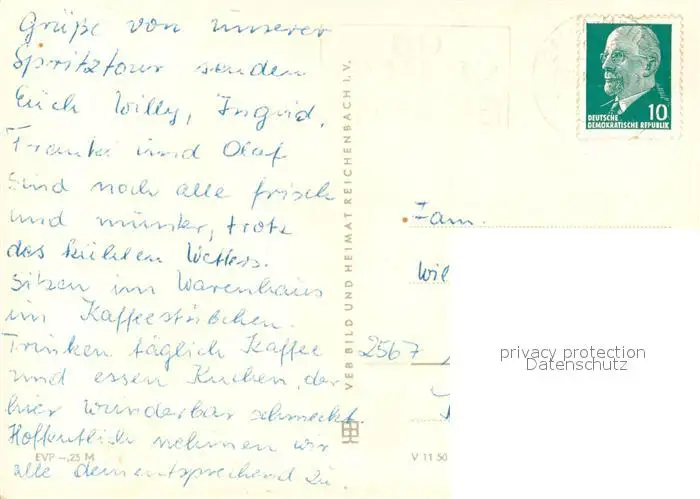 Grüße von unserer
Spritztour senden
Euch Willy, Ingrid,
Frauke und Olaf
Sind noch alle frisch
und munter, trotz
des kühlen Wetters.
Sitzen im Warenhaus
im Kaffeestübchen.
Trinken täglich Kaffee
und essen Kuchen, der
hier wunderbar schmeckt.
Hoffentlich nehmen wir
alle dementsprechend zu.
EVP -,25 M
VEB BILD UND HEIMAT REICHENBACH I. V.
V 11 50
10
DEUTSCHE
DEMOKRATISCHE REPUBLIK
Fam.
Wil
2567
privacy protection
Datenschutz